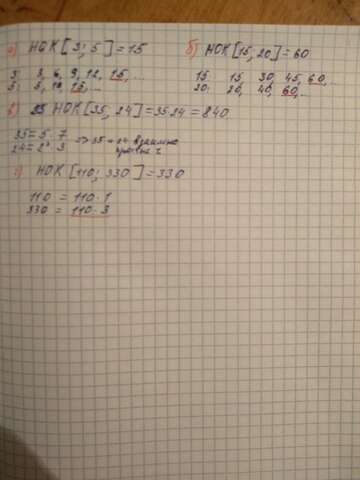 а) НОК [3; 5] = 15
3: 3, 6, 9, 12, 15, ...
5: 5, 10, 15, ...
б) НОК [15, 20] = 60
15: 15, 30, 45, 60, ...
20: 20, 40, 60, ...
в) НОК [35, 24] = 35 24 = 840
35 = 5 · 7
24 = 2³ · 3 => 35 и 24 взаимно простые ч.
г) НОК [110; 330] = 330
110 = 110 · 1
330 = 110 · 3